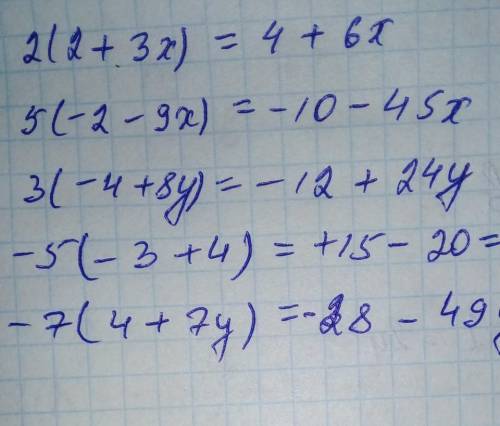 2(2 + 3x) = 4 + 6x
5(-2 - 9x) = -10 - 45x
3(-4 + 8y) = -12 + 24y
-5(-3 + 4) = +15 - 20 =
-7(4 + 7y) = -28 - 49y